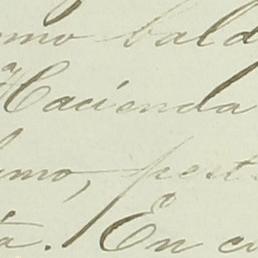 como bald
Hacienda
imo, pert
ta. En cu